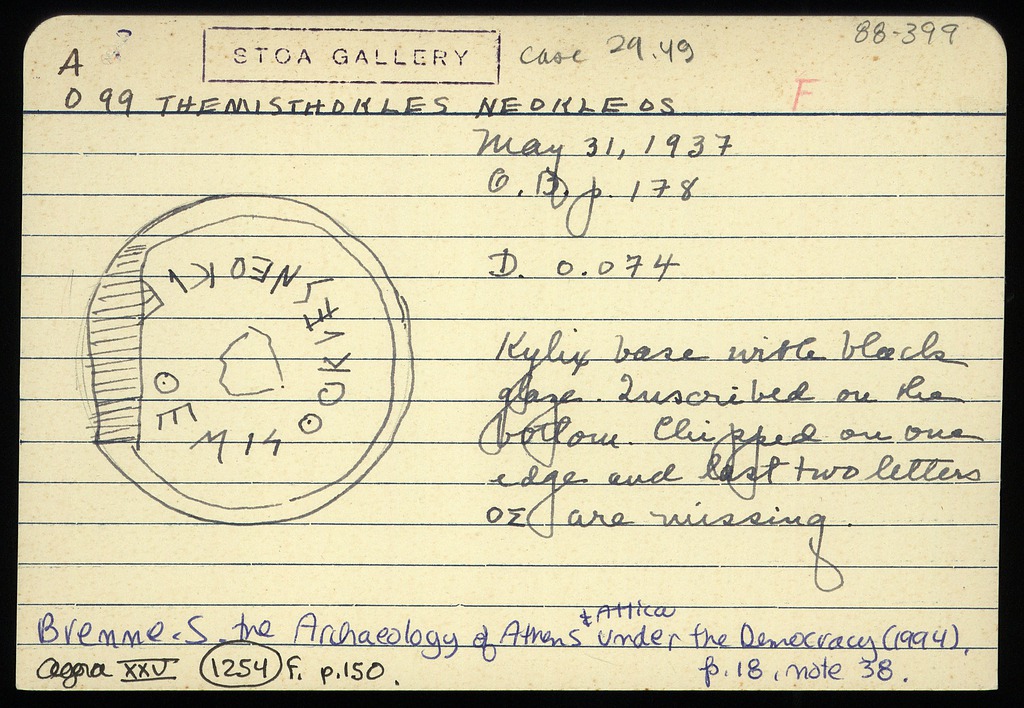 88-399
A STOA GALLERY Case 29.49
O 99 THEMISTHOKLES NEOKLEOS F
May 31, 1937
O.B. p. 178
D. 0.074
NEOKV
Kylix base with black
glaze. Inscribed on the
bottom. Chipped on one
edge and last two letters
ΟΣ are missing.
Brenne. S. the Archaeology of Athens & Attica under the Democracy (1994).
p. 18, note 38.
Agora XXV 1254 F. p. 150.